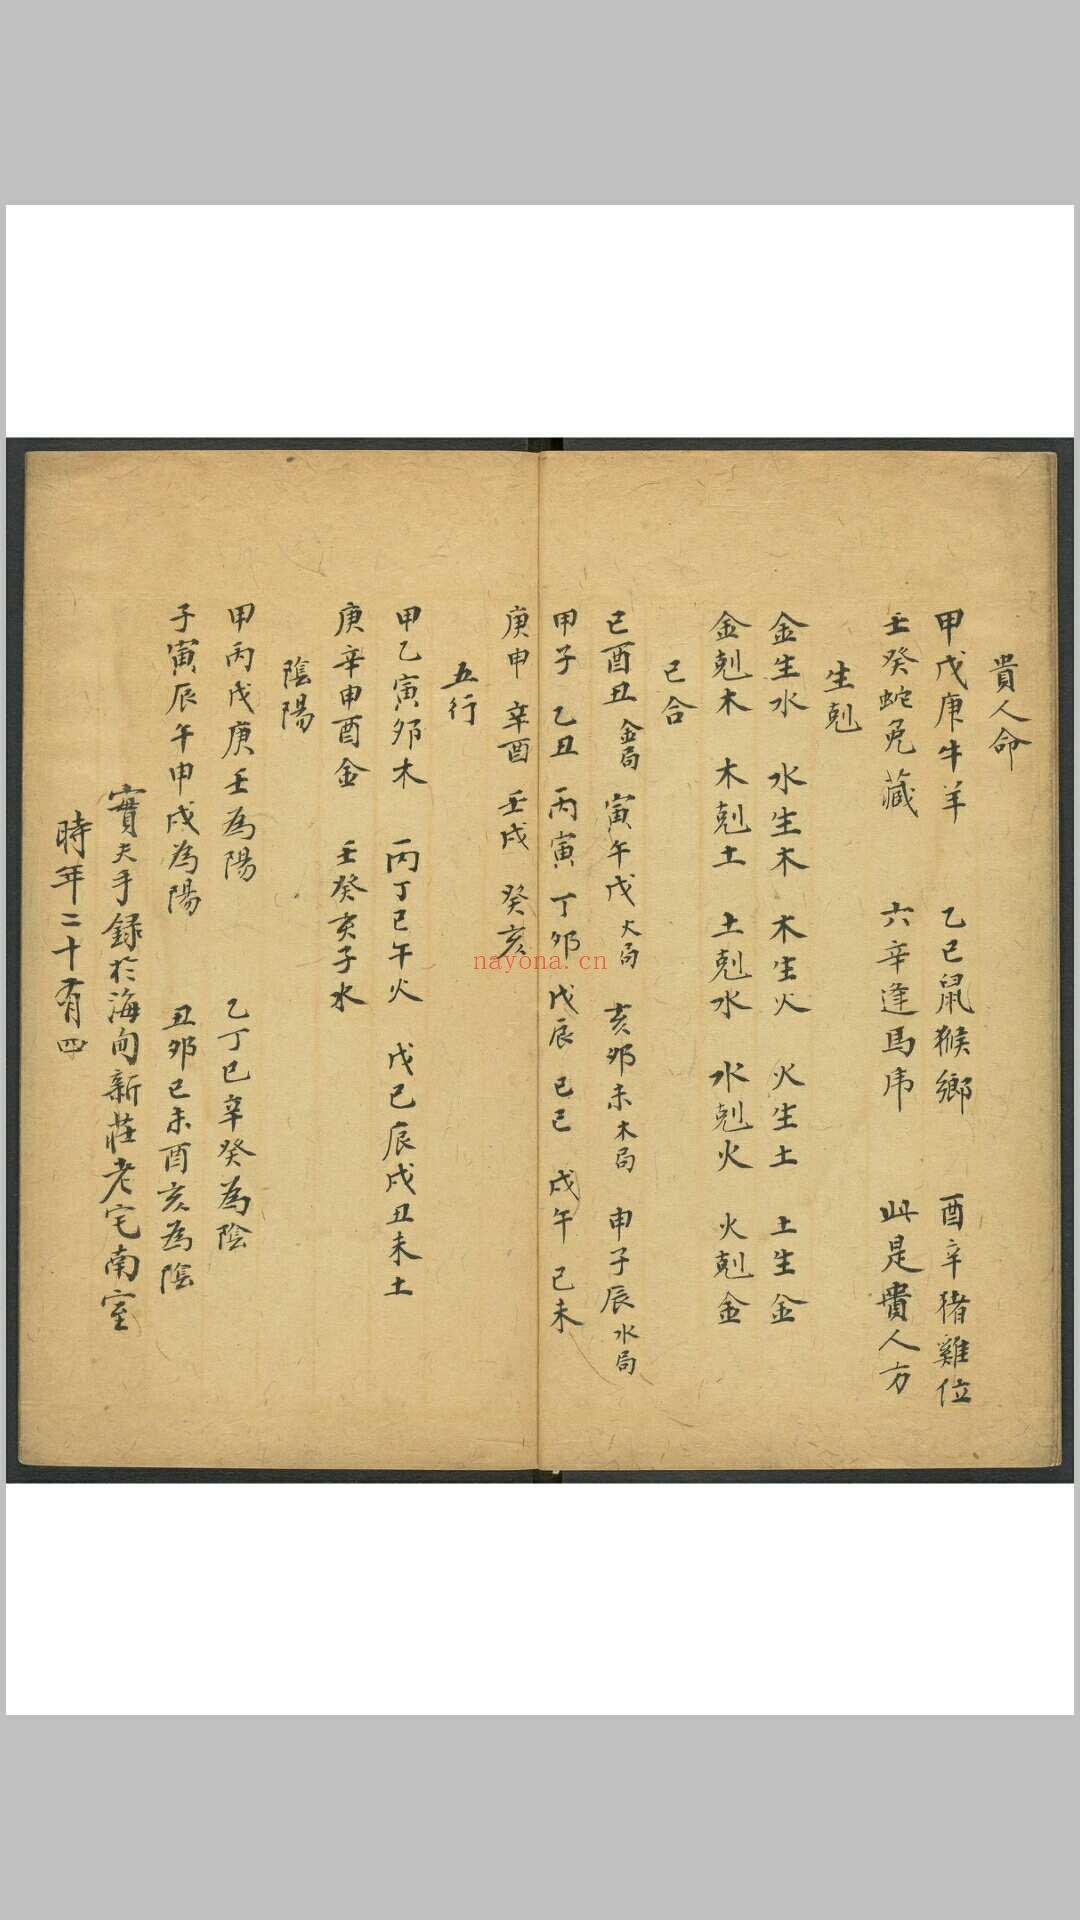 貴人命
甲戊庚牛羊　乙己鼠猴鄉　酉辛猪雞位
壬癸蛇兔藏　六辛逢馬虎　此是貴人方
生剋
金生水　水生木　木生火　火生土　土生金
金剋木　木剋土　土剋水　水剋火　火剋金
已合
已酉丑金局　寅午戊火局　亥卯未木局　申子辰水局
甲子　乙丑　丙寅　丁卯　戊辰　己巳　戊午　己未
庚申　辛酉　壬戌　癸亥
五行
甲乙寅卯木　丙丁巳午火　戊己辰戌丑未土
庚辛申酉金　壬癸亥子水
陰陽
甲丙戊庚壬為陽　乙丁巳辛癸為陰
子寅辰午申戌為陽　丑卯巳未酉亥為陰
實夫手錄於海甸新莊老宅南室
時年二十有四
nayona.cn